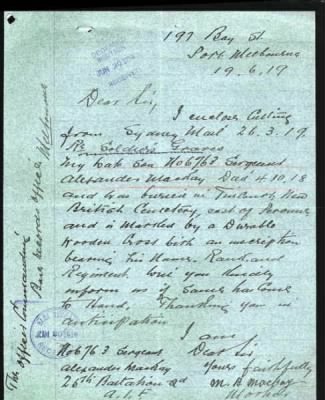 197 Bay St
Port Melbourne
19.6.19
Dear Sir,
I enclose Cutting
from Sydney Mail 26.3.19.
Re Soldiers Graves
my Late Son No 6763 Sergeant
Alexander Mackay Died 4.10.18
and was buried at Tincourt New
British Cemetery, east of Peronne
and is Marked by a Durable
Wooden Cross with an inscription
bearing his Name, Rank and
Regiment will you Kindly
inform us if Same has Come
to Hand, Thanking you in
anticipation
I am
Dear Sir
yours faithfully
Mother
No 6763 Sergeant
Alexander Mackay
Battalion
A.I.F
The Officer Commanding
Base Records Office Melbourne
JUN 20 1919